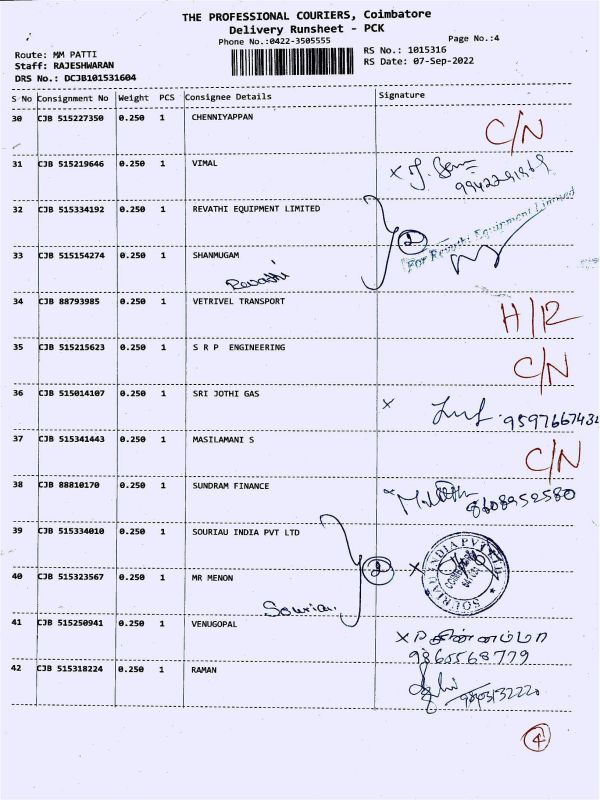 THE PROFESSIONAL COURIERS, Coimbatore
Delivery Runsheet - PCK
Phone No.:0422-3505555
Page No.:4
Route: MM PATTI
RS No.: 1015316
Staff: RAJESHWARAN
RS Date: 07-Sep-2022
DRS No.: DCJB101531604
S No Consignment No Weight PCS Consignee Details Signature
30 CJB 515227350 0.250 1 CHENNIYAPPAN C/N
31 CJB 515219646 0.250 1 VIMAL
32 CJB 515334192 0.250 1 REVATHI EQUIPMENT LIMITED
2 For Revathi Equipment Limited
33 CJB 515154274 0.250 1 SHANMUGAM
Revathi
34 CJB 88793985 0.250 1 VETRIVEL TRANSPORT H/R
35 CJB 515215623 0.250 1 S R P ENGINEERING C/N
36 CJB 515014107 0.250 1 SRI JOTHI GAS X 9597667431
37 CJB 515341443 0.250 1 MASILAMANI S C/N
38 CJB 88810170 0.250 1 SUNDRAM FINANCE 8608952580
39 CJB 515334010 0.250 1 SOURIAU INDIA PVT LTD
2 X SOURIAU INDIA PVT LTD
40 CJB 515323567 0.250 1 MR MENON
Souriau
41 CJB 515250941 0.250 1 VENUGOPAL X P சின்னம்மா
9860568779
42 CJB 515318224 0.250 1 RAMAN
4